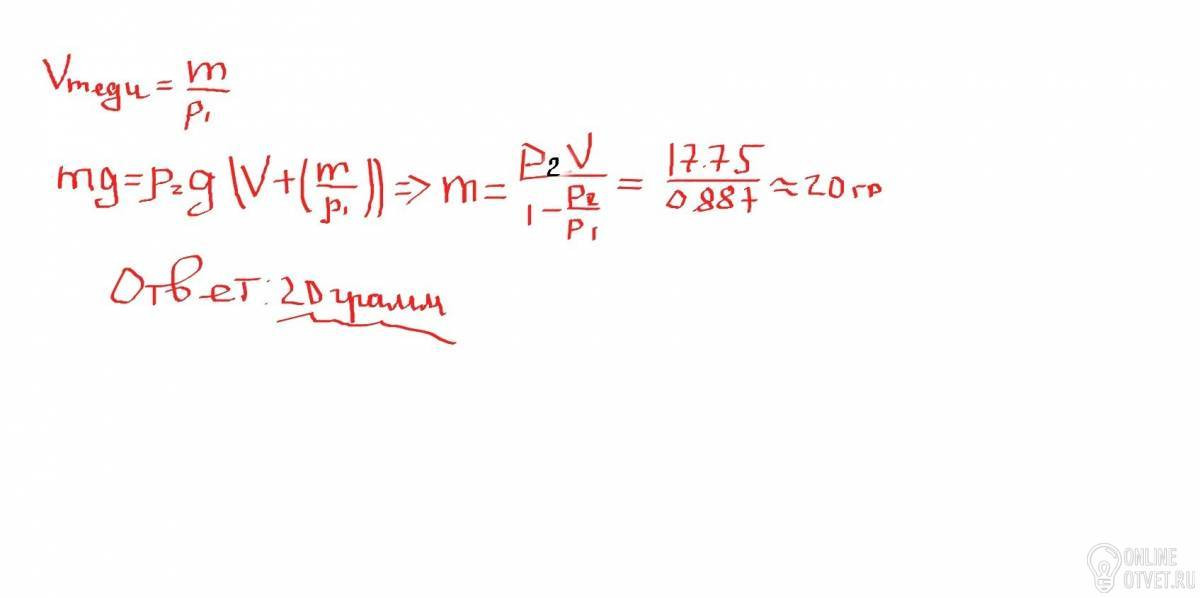 Vмеди = m/ρ₁
mg = ρ₂g(V+(m/ρ₁)) => m = ρ₂V/(1-ρ₂/ρ₁) = 17.75/0887 ≈ 20гр
Ответ: 20 грамм
ONLINE
OTVET.RU